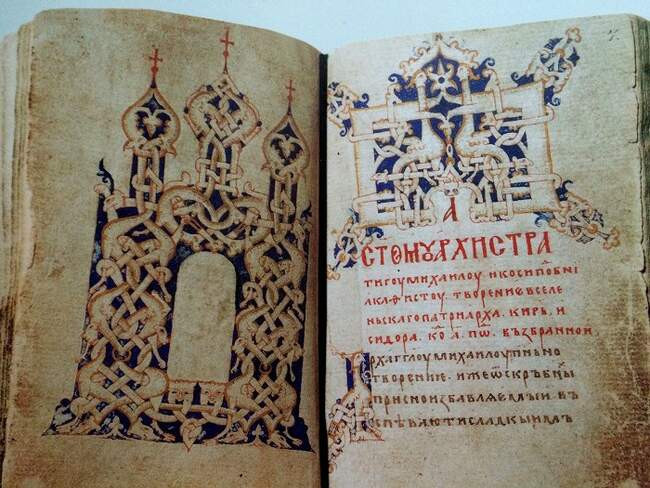 А
СТОМꙊАРХИСТРА
ТИГОУМИХАИЛОУ ИКОСИПОⷣБНІ
АКАѲИСТОУ. ТВОРЕНИѤ ВСЕЛЕ
НЬСКАГОПАТРИАРХА. КИРЬ, И
СИДОРА. А҃. ПѠⷣ. ВЪЗБРАННОИ,
АРХАГГЛОУМИХАИЛОУПѢНЬНО
ТВОРЕНИЕ. ИЖЕѾСКРЪБНЫ
ПРИСНОИЗБАВЛѦЕМЫИ. ВЪ
СПѢВАЮТИСЛАДКЫИМЪ